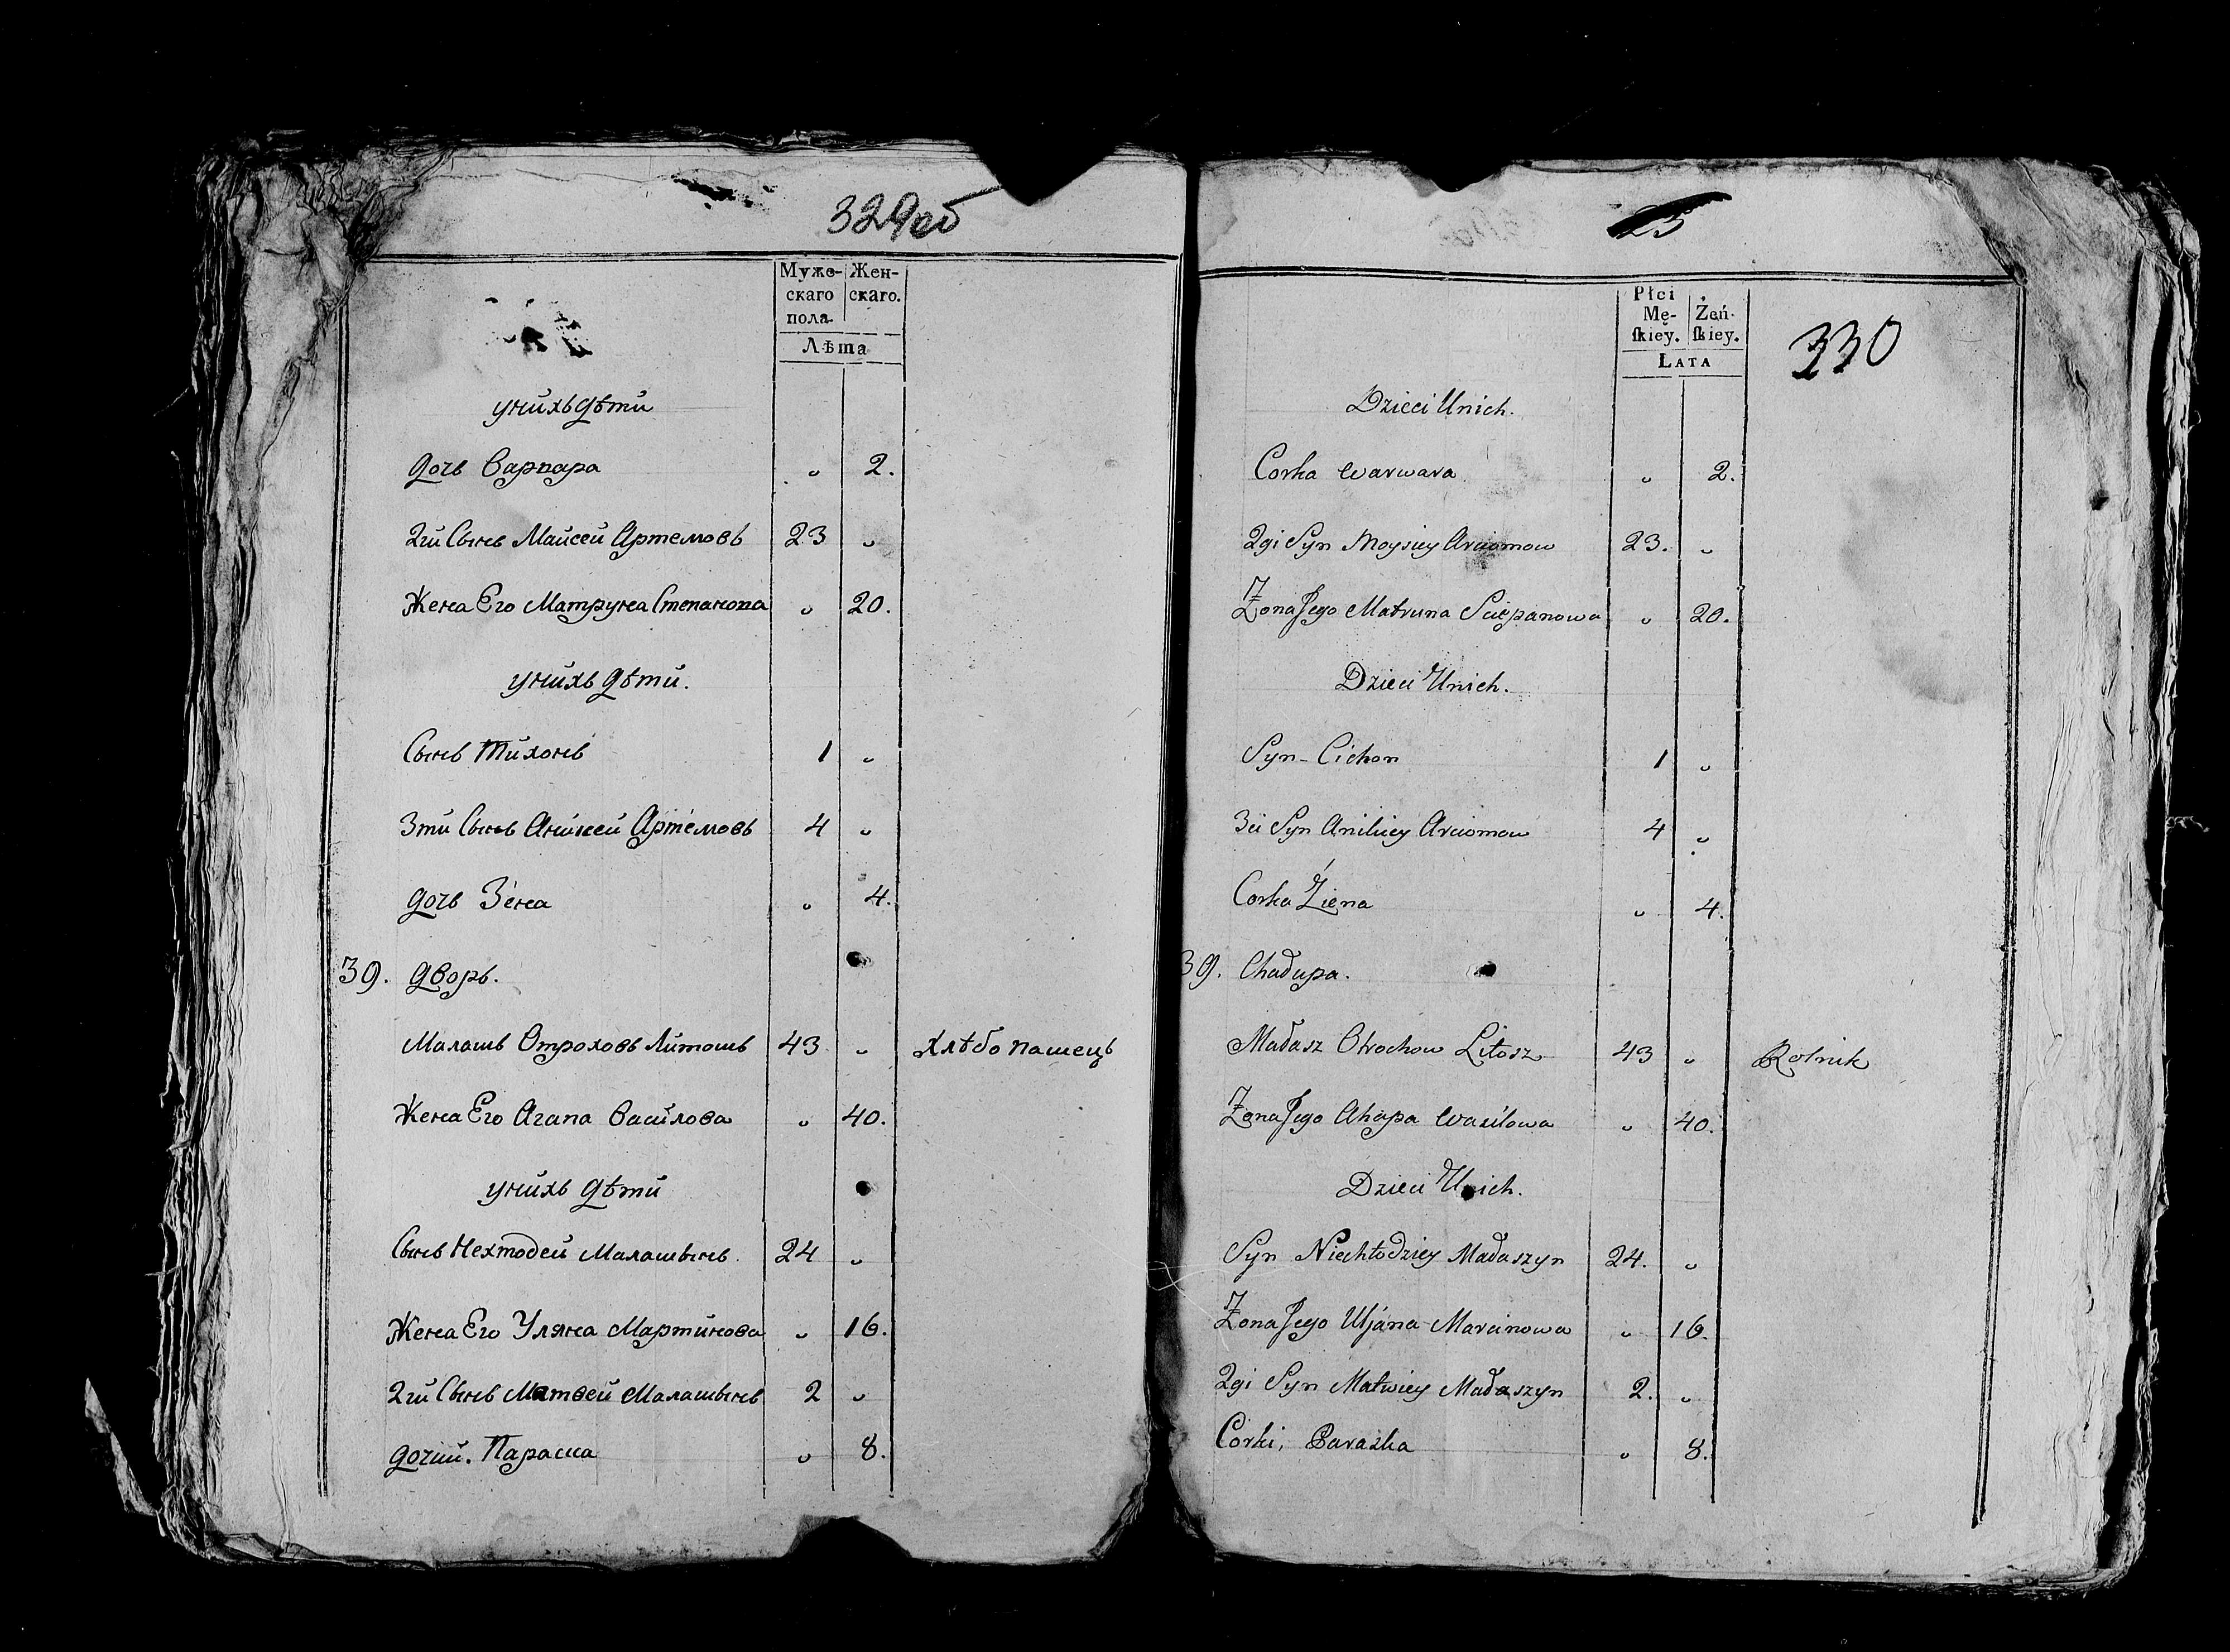 329об
Муже- Жен-
скаго скаго.
пола.
Лѣта
унихъ дѣти
дочь Варвара 2.
2й Сынъ Майсей Артемовъ 23
Жена Его Матруна Степанова 20.
унихъ дѣти.
Сынъ Тихонъ 1
3ти Сынъ Аникей Артемовъ 4
дочь Зѣна 4.
39. дворъ.
Малашъ Отроховъ Литошъ 43 хлѣбопашецъ
Жена Его Агапа Василова 40.
унихъ дѣти
Сынъ Нехтодей Малашынъ 24
Жена Его Уляна Мартинова 16.
2гй Сынъ Матвей Малашынъ 2
дочии. Параска 8.
25
330
Płci
Mę- Żeń-
ſkiey. ſkiey.
LATA
Dzieci Unich.
Corka Warwara 2.
2gi Syn Moysiey Arciomow 23.
Zona Jego Matruna Sciepanowa 20.
Dzieci Unich.
Syn Cichon 1
3ci Syn Anikiey Arciomow 4
Corka Ziena 4.
39. Chałupa.
Małasz Otrochow Litosz 43 Rolnik
Zona Jego Ahapa Wasilowa 40.
Dzieci Unich.
Syn Niechtodziey Małaszyn 24.
Zona Jego Uljana Marcinowa 16.
2gi Syn Matwiey Małaszyn 2.
Corki, Paraska 8.